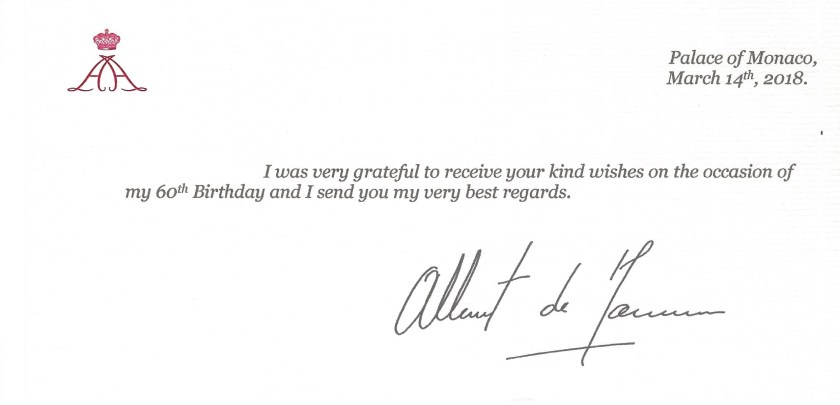 Palace of Monaco,
March 14th, 2018.
I was very grateful to receive your kind wishes on the occasion of
my 60th Birthday and I send you my very best regards.
Albert de Monaco